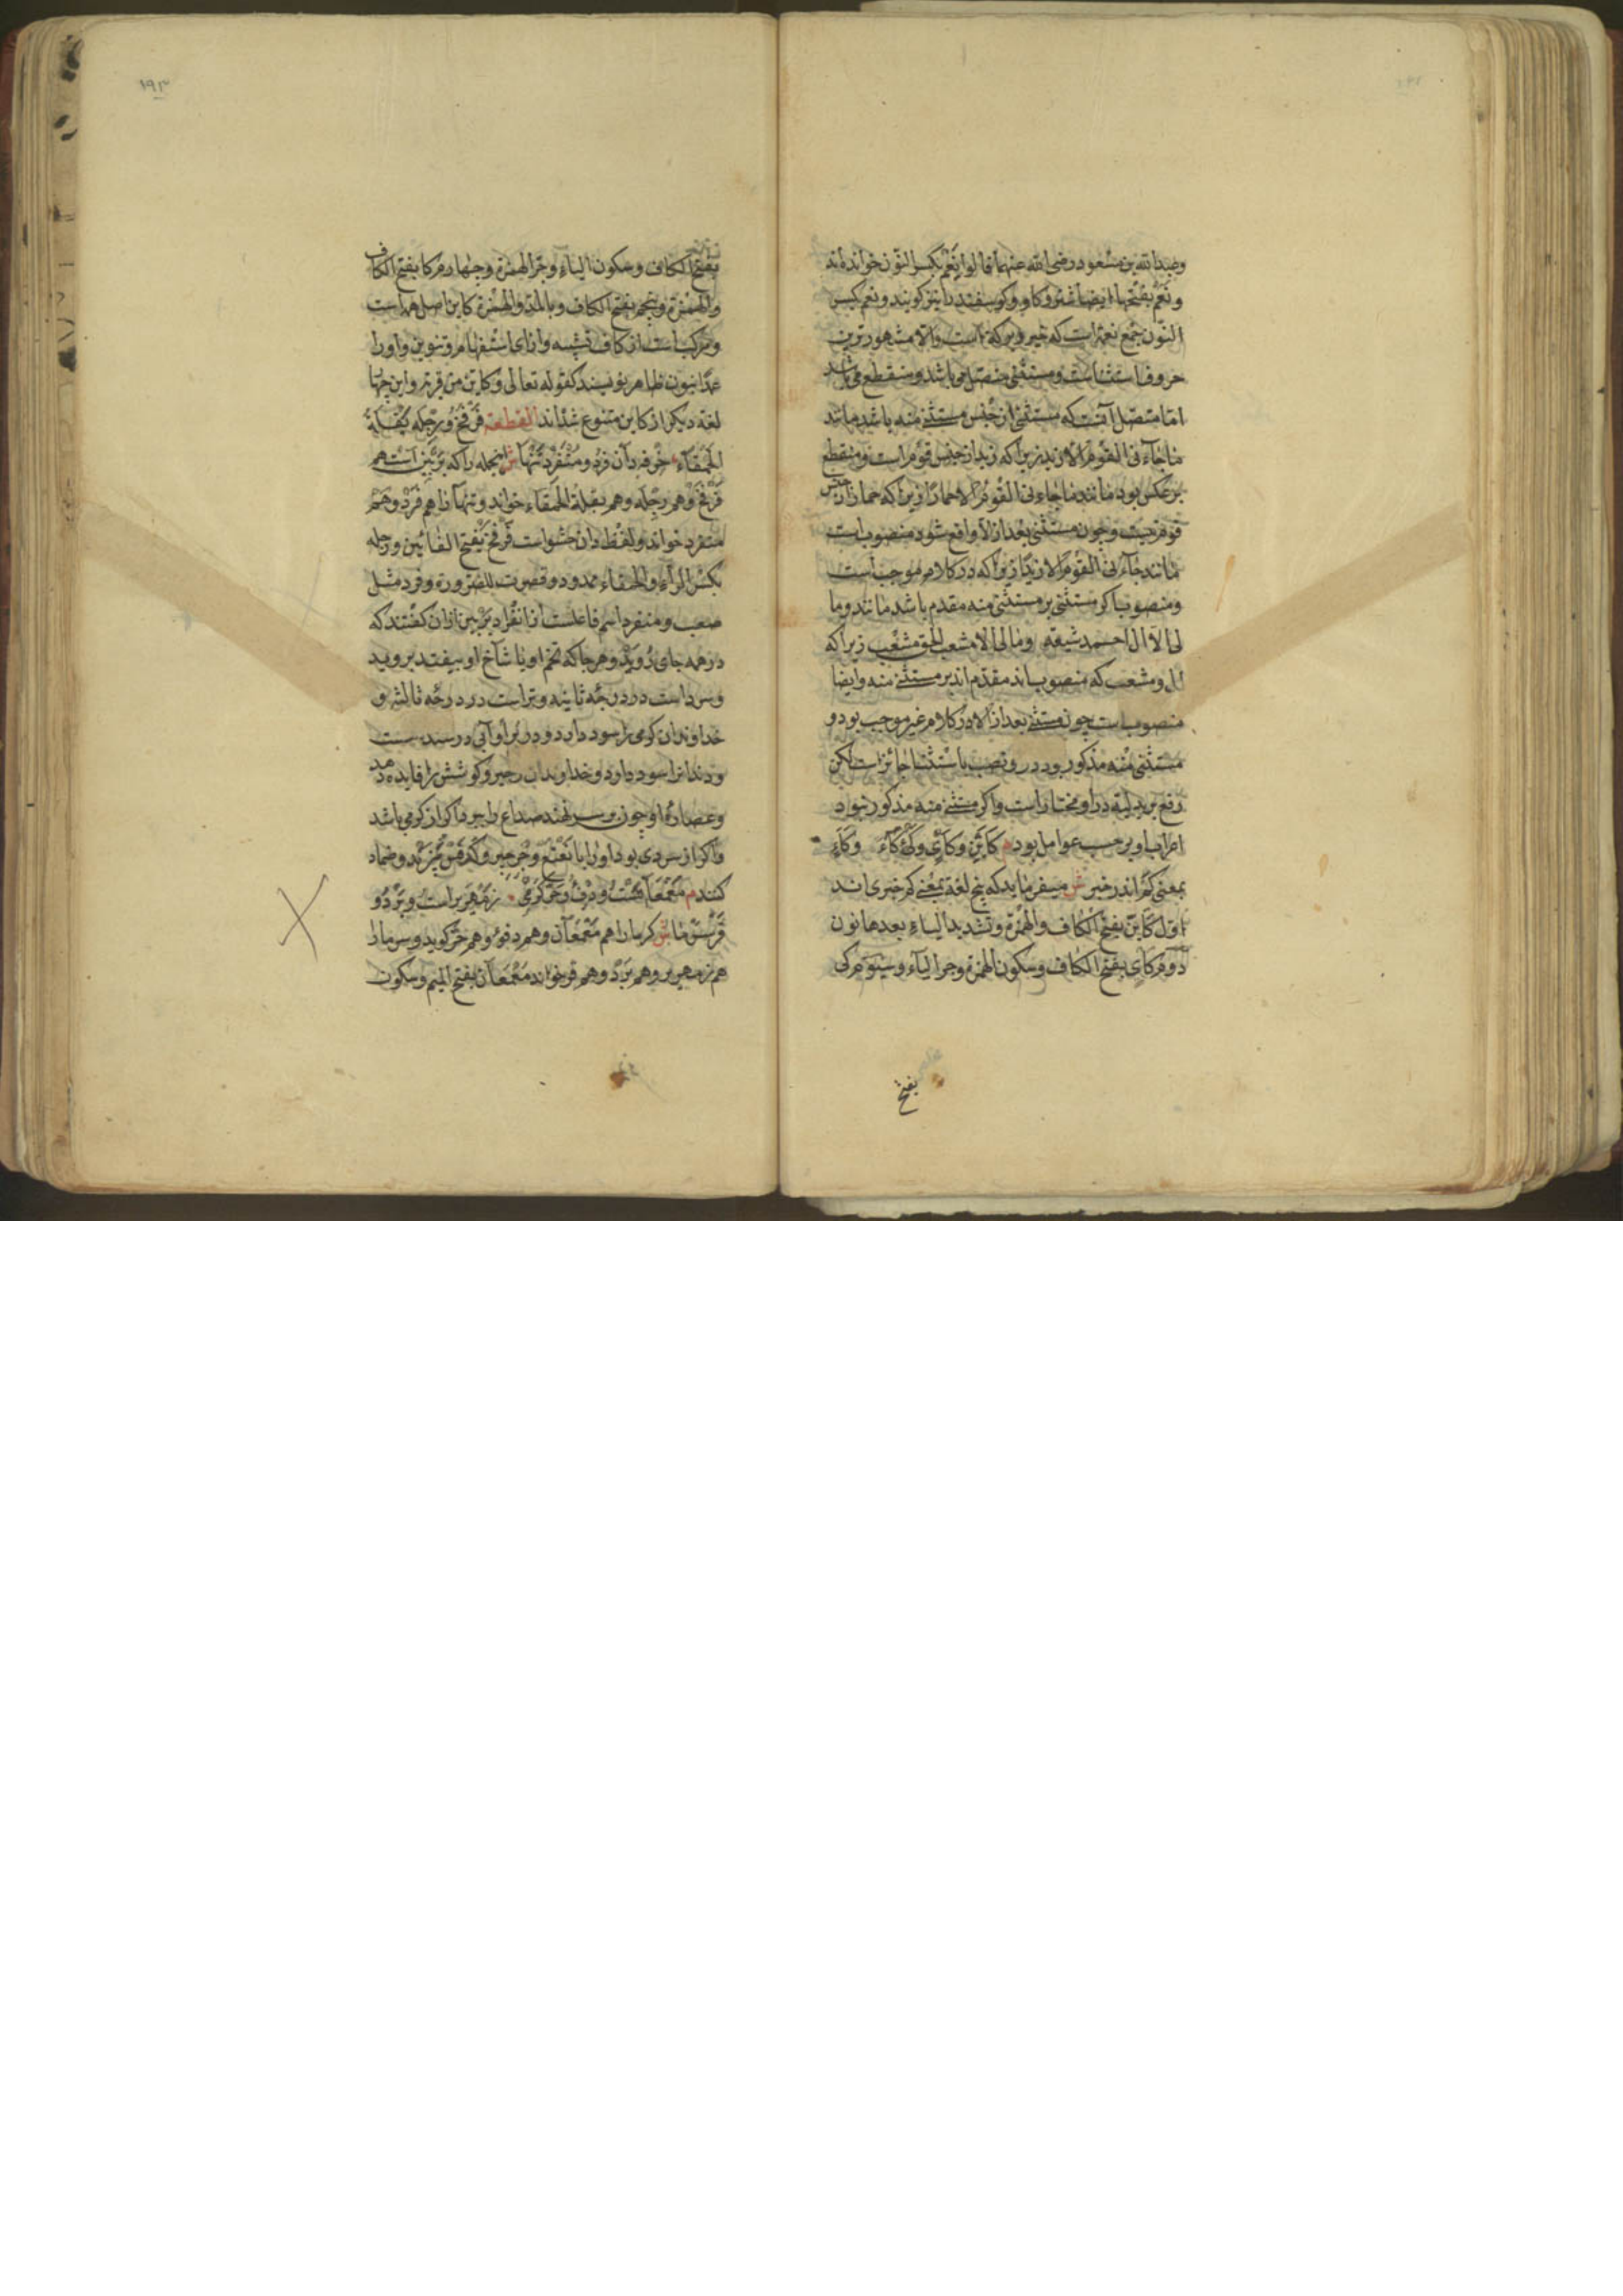 وعبدالله بن مسعود رضی الله عنهما قالوا نِعَم بکسر النون خوانده‌اند
ونَعَم بفتحها ایضا شتر وکاو وکوسفند را نیز کویند ونعم بکسر
النون جمع نعمة است که خیر وبرکة است والا مشهورترین
حروف استثناست ومستثنی متصل می باشد ومنقطع می باشد
اما متصل آنست که مستثنی از جنس مستثنی منه باشد مانند
ما جاءنی القوم الا زید زیرا که زید از جنس قوم است ومنقطع
برعکس بود مانند ما جاءنی القوم الا حمارا زیرا که حمار از جنس
قوم نیست وچون مستثنی بعد از الا واقع شود منصوب است
مانند جاءنی القوم الا زیدا زیرا که در کلام موجب است
ومنصوب اکر مستثنی بر مستثنی منه مقدم باشد مانند وما
لی الا آل احمد شیعة ومالی الا مشعب الحق مشعب زیرا که
آل ومشعب که منصوب‌اند مقدم‌اند بر مستثنی منه وایضا
منصوب است چون مستثنی بعد از الا در کلام غیر موجب بود و
مستثنی منه مذکور بود درو نصب باستثنا جائز است لکن
رفع بر بدلیة درو مختار است واکر مستثنی منه مذکور نبود
اعراب او برحسب عوامل بود م کاین وکاي وکيء کاء وکاء
بمعنی کم اندر خبر ش میفرماید که پنج لغة بمعنی کم خبری‌اند
اول کاین بفتح الکاف والهمزة وتشدید الیاء بعدها نون
دوم کاي بفتح الکاف وسکون الهمزة وجر الیاء وسیوم کی
بفتح
۱۹۳
بفتح الکاف وسکون الیاء وجر الهمزة وچهارم کا بفتح الکاف
والهمزة وپنجم بفتح الکاف وبالمد والهمزة کاین اصل همه است
ومرکب است از کاف تشبیه واز ای استفهام وتنوین واورا
عمدا بنون ظاهر نویسند کقوله تعالی وکاین من قریة واین چهار
لغة دیکر از کاین متنوع شده‌اند القطعة فرفخ ورجله بقلة
الحمقاء خرفه دان فرد ومنفرد تنها ش انجمله را که بربین است هم
فرفخ وهم رجله وهم بقلة الحمقاء خوانند وتنها را هم فرد وهم
منفرد خوانند ولفظ دان حشو است فرفخ بفتح الفائین ورجله
بکسر الراء والحمقاء ممدود وقصرت للضرورة وفرد مثل
صعب ومنفرد اسم فاعلست از انفراد بربین ازان کفتند که
در همه جای روید وهر جا که تخم او یا شاخ او بیفتد بروید
وسرد است در درجه ثانیه وتر است در درجه ثالثه و
خداوندان کرمی را سود دارد
ودندانرا سود دارد وخداوندان زحیر وکوشش را فایده دهد
وعصاره او چون بر سر نهند صداع را ببرد اکر از کرمی باشد
واکر از سردی بود اورا با نعنع وجرجیر وکرفس بپزند وضماد
کنند م معمعان هست ودفء وحر کرمی زمهریر است وبرد و
قرّست ما ش کرما را هم معمعان وهم دفء وهم حر کوید وسرما را
هم زمهریر وهم برد وهم قر خوانند معمعان بفتح المیم وسکون